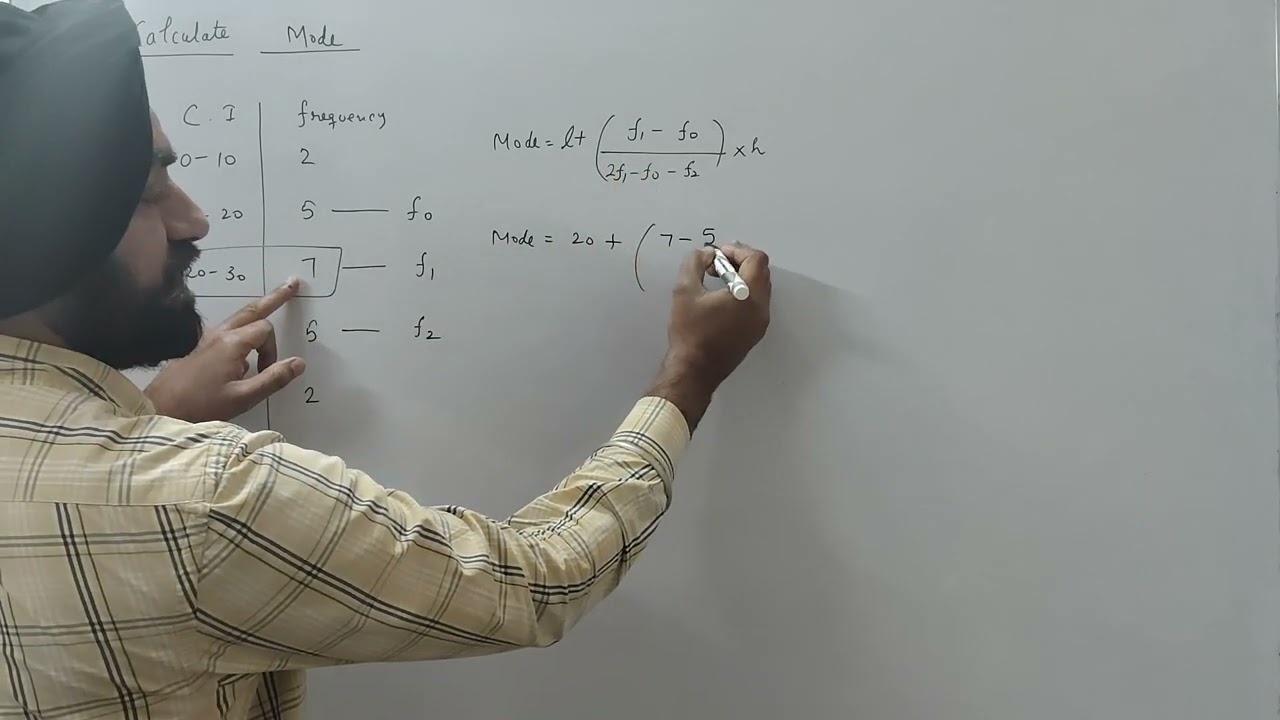 Calculate Mode
C.I frequency
0-10 2
- 20 5 — f₀
20-30 7 — f₁
5 — f₂
2
Mode = l+ (f₁ - f₀ / 2f₁-f₀-f₂) × h
Mode = 20 + ( 7 - 5